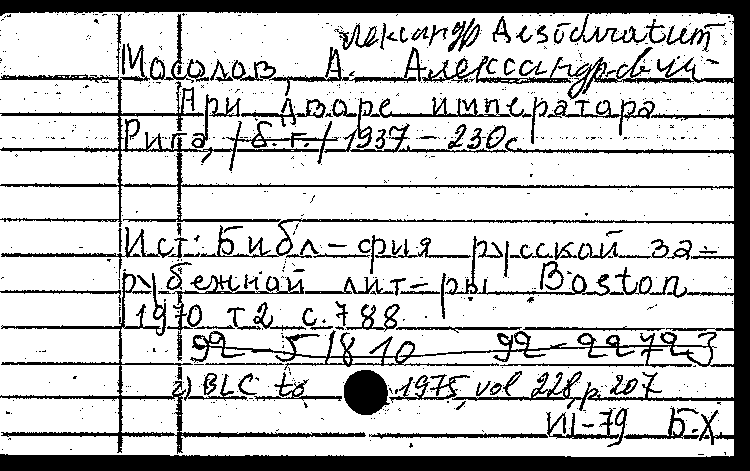 лександр Desideratum
Мосолов, А. Александрович
При дворе императора
Рига, /б. г./ 1937. – 230с
Ист: Библ–фия русской за–
рубежной лит–ры Boston
1970 т2 с.788
92–51810 92–22723
2) BLC to 1975, vol 228, p. 207
VIII–79 Б.Х.